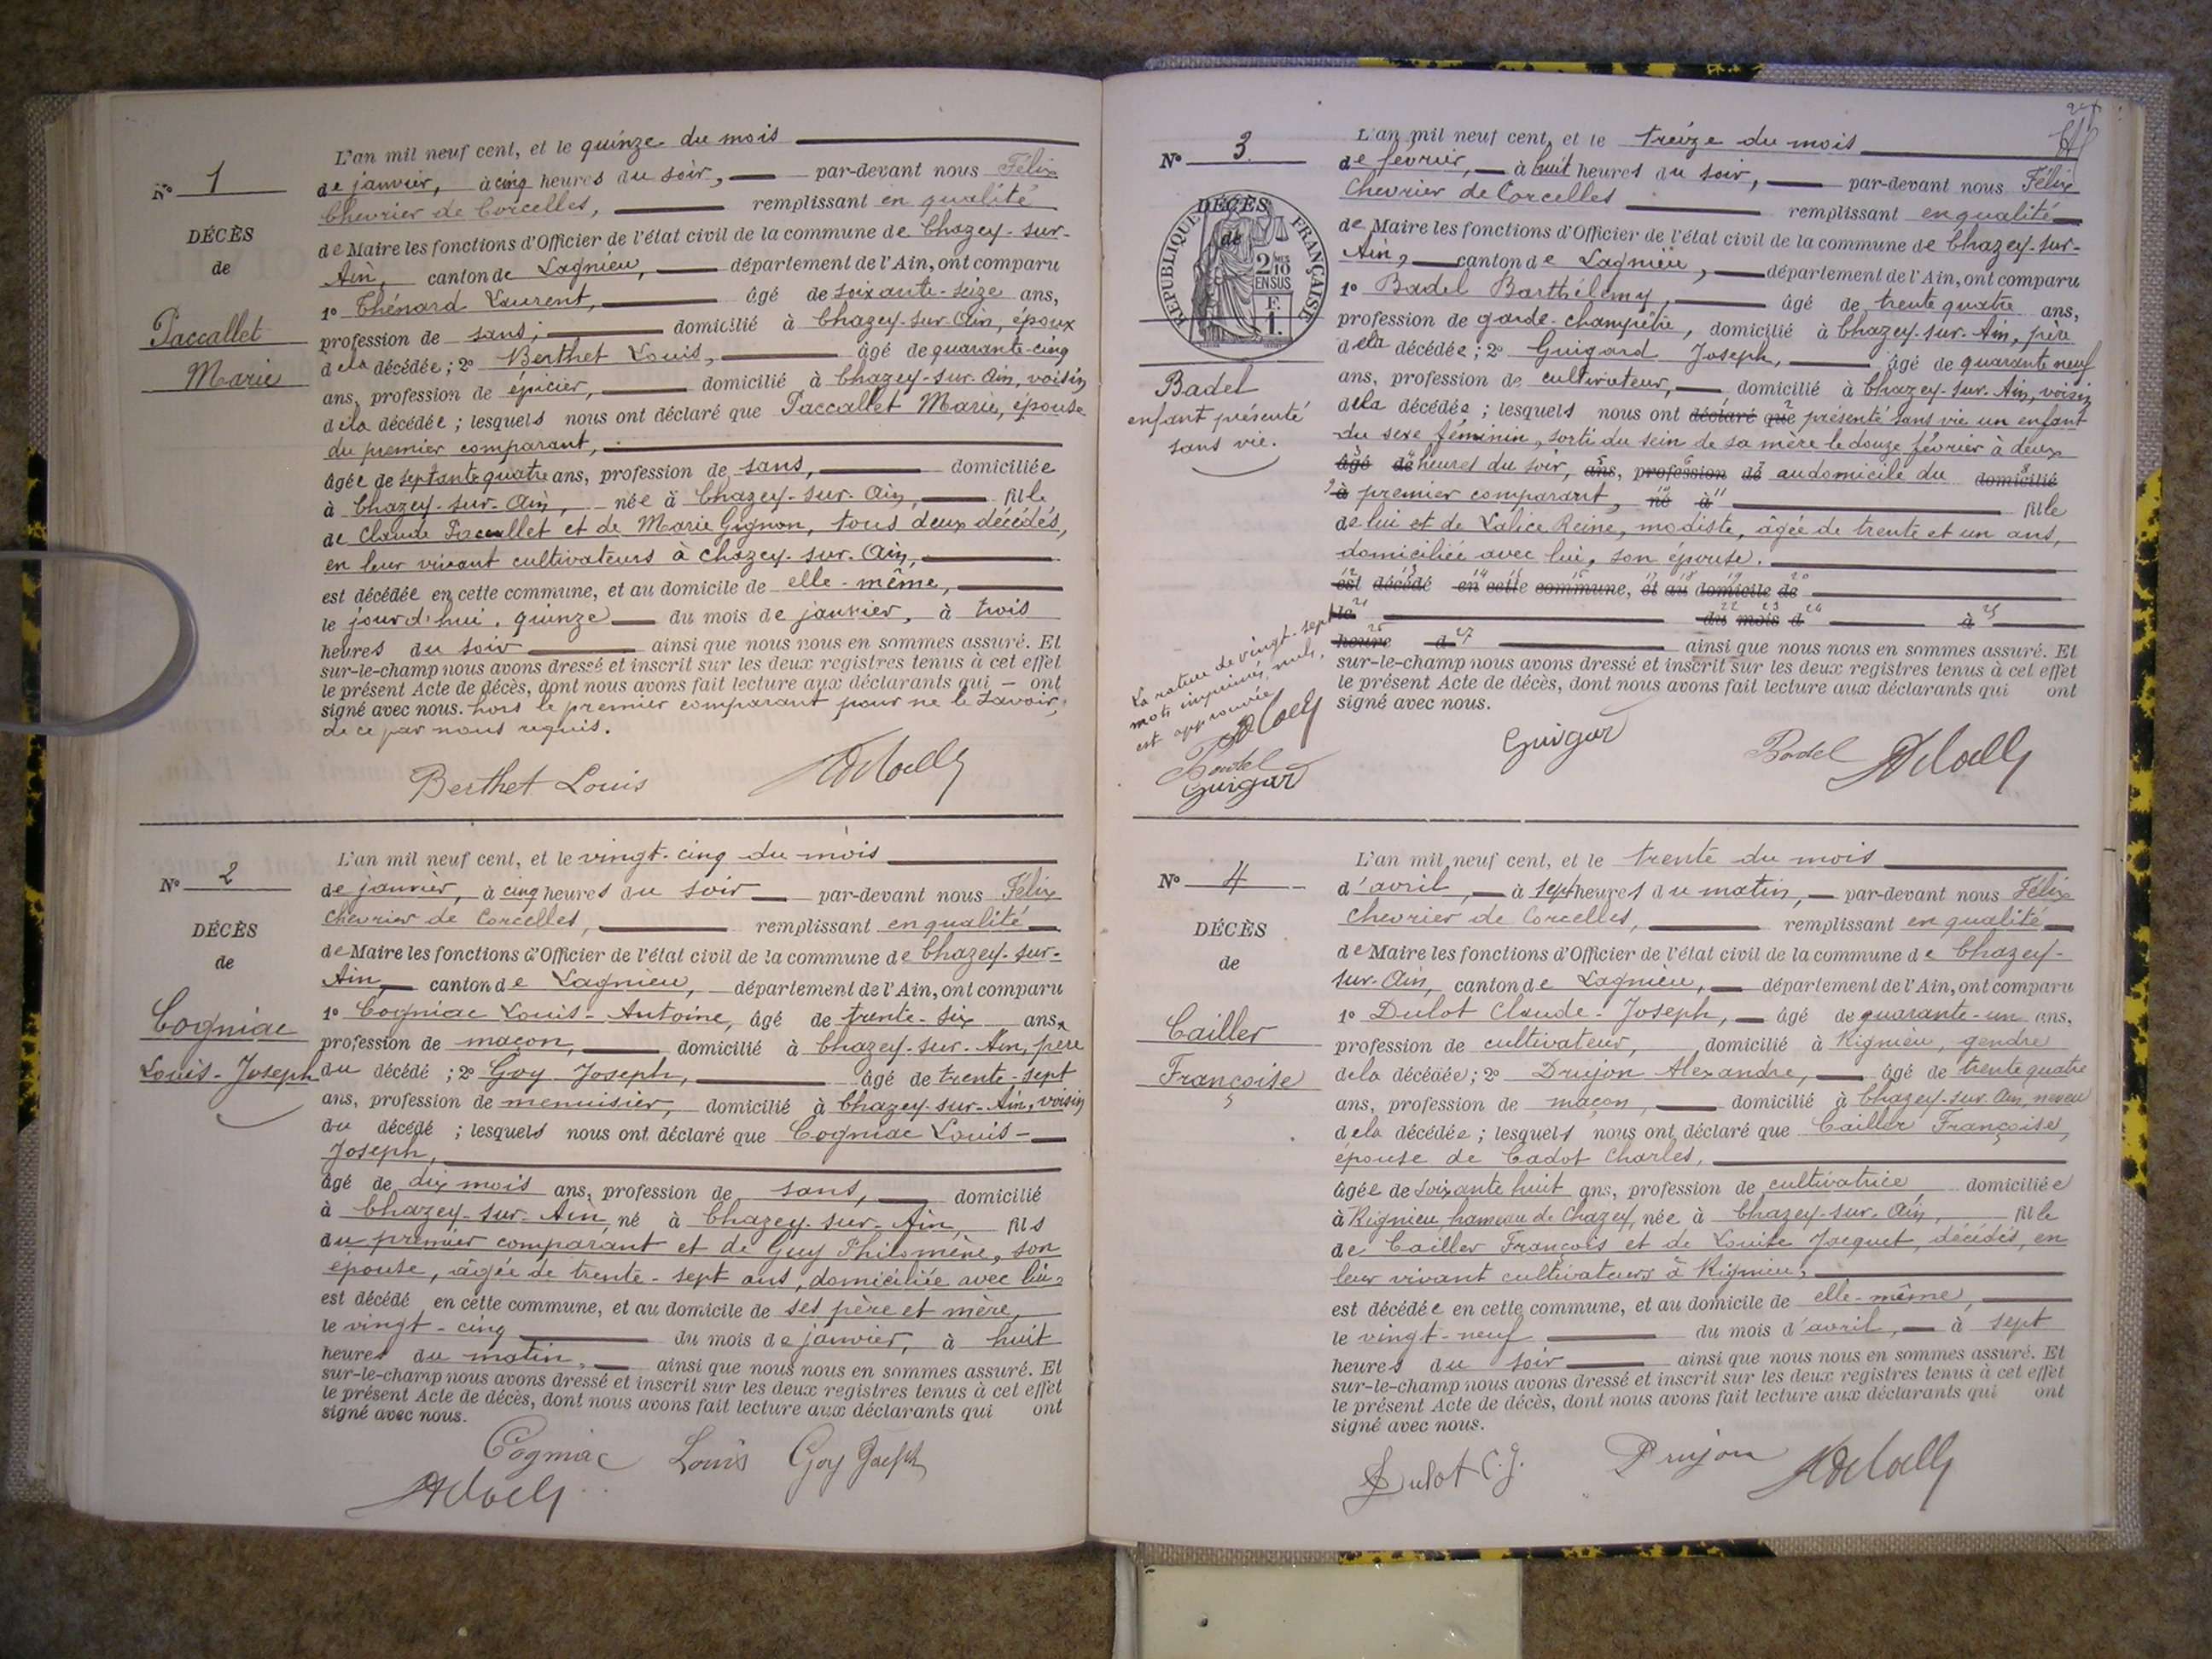 N° 1
DÉCÈS
de
Paccallet
Marie
L'an mil neuf cent, et le quinze du mois
de janvier, à cinq heures du soir, par-devant nous Félix
Chevrier de Corcelles, remplissant en qualité
de Maire les fonctions d'Officier de l'état civil de la commune de Chazey-sur-
Ain, canton de Lagnieu, département de l'Ain, ont comparu
1° Thénard Laurent, âgé de soixante-seize ans,
profession de sans, domicilié à Chazey-sur-Ain, époux
de la décédée; 2° Berthet Louis, âgé de quarante-cinq
ans, profession de épicier, domicilié à Chazey-sur-Ain, voisin
de la décédée; lesquels nous ont déclaré que Paccallet Marie, épouse
du premier comparant,
âgée de septante quatre ans, profession de sans, domiciliée
à Chazey-sur-Ain, née à Chazey-sur-Ain, fille
de Claude Paccallet et de Marie Gignon, tous deux décédés,
en leur vivant cultivateurs à Chazey-sur-Ain,
est décédée en cette commune, et au domicile de elle-même,
le jourd'hui, quinze du mois de janvier, à trois
heures du soir ainsi que nous nous en sommes assuré. Et
sur-le-champ nous avons dressé et inscrit sur les deux registres tenus à cet effet
le présent Acte de décès, dont nous avons fait lecture aux déclarants qui ont
signé avec nous. hors le premier comparant pour ne le savoir,
de ce par nous requis.
Berthet Louis
N° 2
DÉCÈS
de
Cogniac
Louis-Joseph
L'an mil neuf cent, et le vingt-cinq du mois
de janvier, à cinq heures du soir par-devant nous Félix
Chevrier de Corcelles, remplissant en qualité
de Maire les fonctions d'Officier de l'état civil de la commune de Chazey-sur-
Ain, canton de Lagnieu, département de l'Ain, ont comparu
1° Cogniac Louis-Antoine, âgé de trente-six ans,
profession de maçon, domicilié à Chazey-sur-Ain, père
du décédé; 2° Goy Joseph, âgé de trente-sept
ans, profession de menuisier, domicilié à Chazey-sur-Ain, voisin
du décédé; lesquels nous ont déclaré que Cogniac Louis-
Joseph,
âgé de dix mois ans, profession de sans, domicilié
à Chazey-sur-Ain, né à Chazey-sur-Ain, fils
du premier comparant et de Guy Philomène, son
épouse, âgée de trente-sept ans, domiciliée avec lui,
est décédé en cette commune, et au domicile de ses père et mère,
le vingt-cinq du mois de janvier, à huit
heures du matin, ainsi que nous nous en sommes assuré. Et
sur-le-champ nous avons dressé et inscrit sur les deux registres tenus à cet effet
le présent Acte de décès, dont nous avons fait lecture aux déclarants qui ont
signé avec nous.
Cogniac Louis Goy Joseph
N° 3
DÉCÈS
de
RÉPUBLIQUE FRANÇAISE
2/10
EN SUS
F.
1.
Badel
enfant présenté
sans vie.
L'an mil neuf cent, et le treize du mois
de février, à huit heures du soir, par-devant nous Félix
Chevrier de Corcelles remplissant en qualité
de Maire les fonctions d'Officier de l'état civil de la commune de Chazey-sur-
Ain, canton de Lagnieu, département de l'Ain, ont comparu
1° Badel Barthélemy, âgé de trente quatre ans,
profession de garde-champêtre, domicilié à Chazey-sur-Ain, père
de la décédée; 2° Guigard Joseph, âgé de quarante neuf
ans, profession de cultivateur, domicilié à Chazey-sur-Ain, voisin
de la décédée; lesquels nous ont déclaré que présenté sans vie un enfant
du sexe féminin, sorti du sein de sa mère le douze février à deux
âgé de heures du soir, ans, profession de au domicile du domicilié
à premier comparant, né à fille
de lui et de Lalice Reine, modiste, âgée de trente et un ans,
domiciliée avec lui, son épouse.
est décédé en cette commune, et au domicile de
le du mois d à
heure d ainsi que nous nous en sommes assuré. Et
sur-le-champ nous avons dressé et inscrit sur les deux registres tenus à cet effet
le présent Acte de décès, dont nous avons fait lecture aux déclarants qui ont
signé avec nous.
La rature de vingt-sept
mots imprimés, nuls,
est approuvée
Badel
Guigar
Guigar Badel
N° 4
DÉCÈS
de
Cailler
Françoise
L'an mil neuf cent, et le trente du mois
d'avril, à sept heures du matin, par-devant nous Félix
Chevrier de Corcelles, remplissant en qualité
de Maire les fonctions d'Officier de l'état civil de la commune de Chazey-
sur-Ain, canton de Lagnieu, département de l'Ain, ont comparu
1° Dulot Claude-Joseph, âgé de quarante-un ans,
profession de cultivateur, domicilié à Rignieu, gendre
de la décédée; 2° Drujon Alexandre, âgé de trente quatre
ans, profession de maçon, domicilié à Chazey-sur-Ain, neveu
de la décédée; lesquels nous ont déclaré que Cailler Françoise,
épouse de Cadot Charles,
âgée de soixante huit ans, profession de cultivatrice, domiciliée
à Rignieu hameau de Chazey, née à Chazey-sur-Ain, fille
de Cailler François et de Louise Jacquet, décédés, en
leur vivant cultivateurs à Rignieu,
est décédée en cette commune, et au domicile de elle-même,
le vingt-neuf du mois d'avril, à sept
heures du soir ainsi que nous nous en sommes assuré. Et
sur-le-champ nous avons dressé et inscrit sur les deux registres tenus à cet effet
le présent Acte de décès, dont nous avons fait lecture aux déclarants qui ont
signé avec nous.
Dulot C.J. Drujon